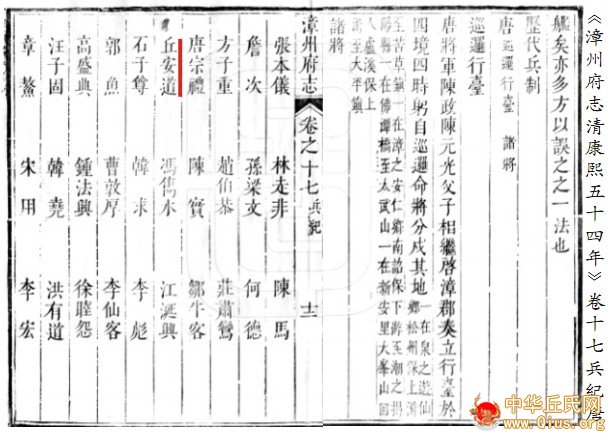 《漳州府志清康熙五十四年》卷十七兵紀唐
艦矣亦多方以誤之之一法也
歷代兵制
唐 巡邏行臺 諸將
巡邏行臺
唐將軍陳政陳元光父子相繼啓漳郡奏立行臺於
四境四時躬自巡邏命將分戍其地 一在泉之遊仙鄉松州保上游
至苦草鎮一在漳之安仁鄉南詔保下游至潮之揭
一在佛潭橋至太武山一在新安里大峯山回
入盧溪保上
游至太平鎮
諸將
漳州府志 卷之十七 兵紀 十二
張本儀 林走非 陳馬
詹次 孫梁文 何德
方子重 趙伯恭 莊肅鸞
唐宗禮 陳實 鄒牛客
丘安道 馮雋永 江延興
石子尊 韓求 李彪
郭魚 曹敦厚 李仙客
高盛典 鍾法興 徐睦怨
汪子固 韓堯 洪有道
章鰲 宋用 李宏
中华丘氏网
www.qius.org